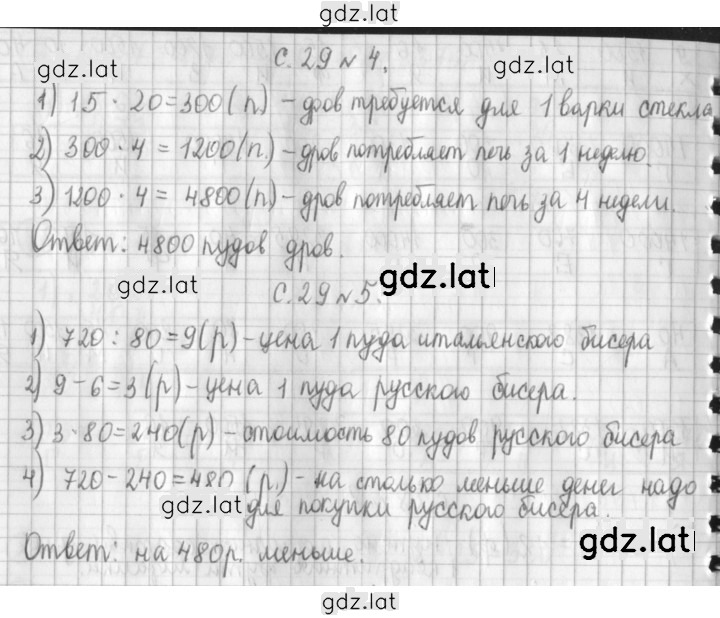 gdz.lat
С. 29 № 4.
gdz.lat
gdz.lat
1) 15 · 20 = 300 (п) - дров требуется для 1 варки стекла
2) 300 · 4 = 1200 (п.) - дров потребляет печь за 1 неделю.
3) 1200 · 4 = 4800 (п) - дров потребляет печь за 4 недели.
Ответ: 4800 пудов дров.
gdz.lat
gdz.lat
С. 29 № 5.
1) 720 : 80 = 9 (р) - цена 1 пуда итальянского бисера
2) 9 - 6 = 3 (р) - цена 1 пуда русского бисера.
3) 3 · 80 = 240 (р) - стоимость 80 пудов русского бисера
4) 720 - 240 = 480 (р.) - на столько меньше денег надо
gdz.lat для покупки русского бисера.
Ответ: на 480 р. меньше.
gdz.lat
gdz.lat